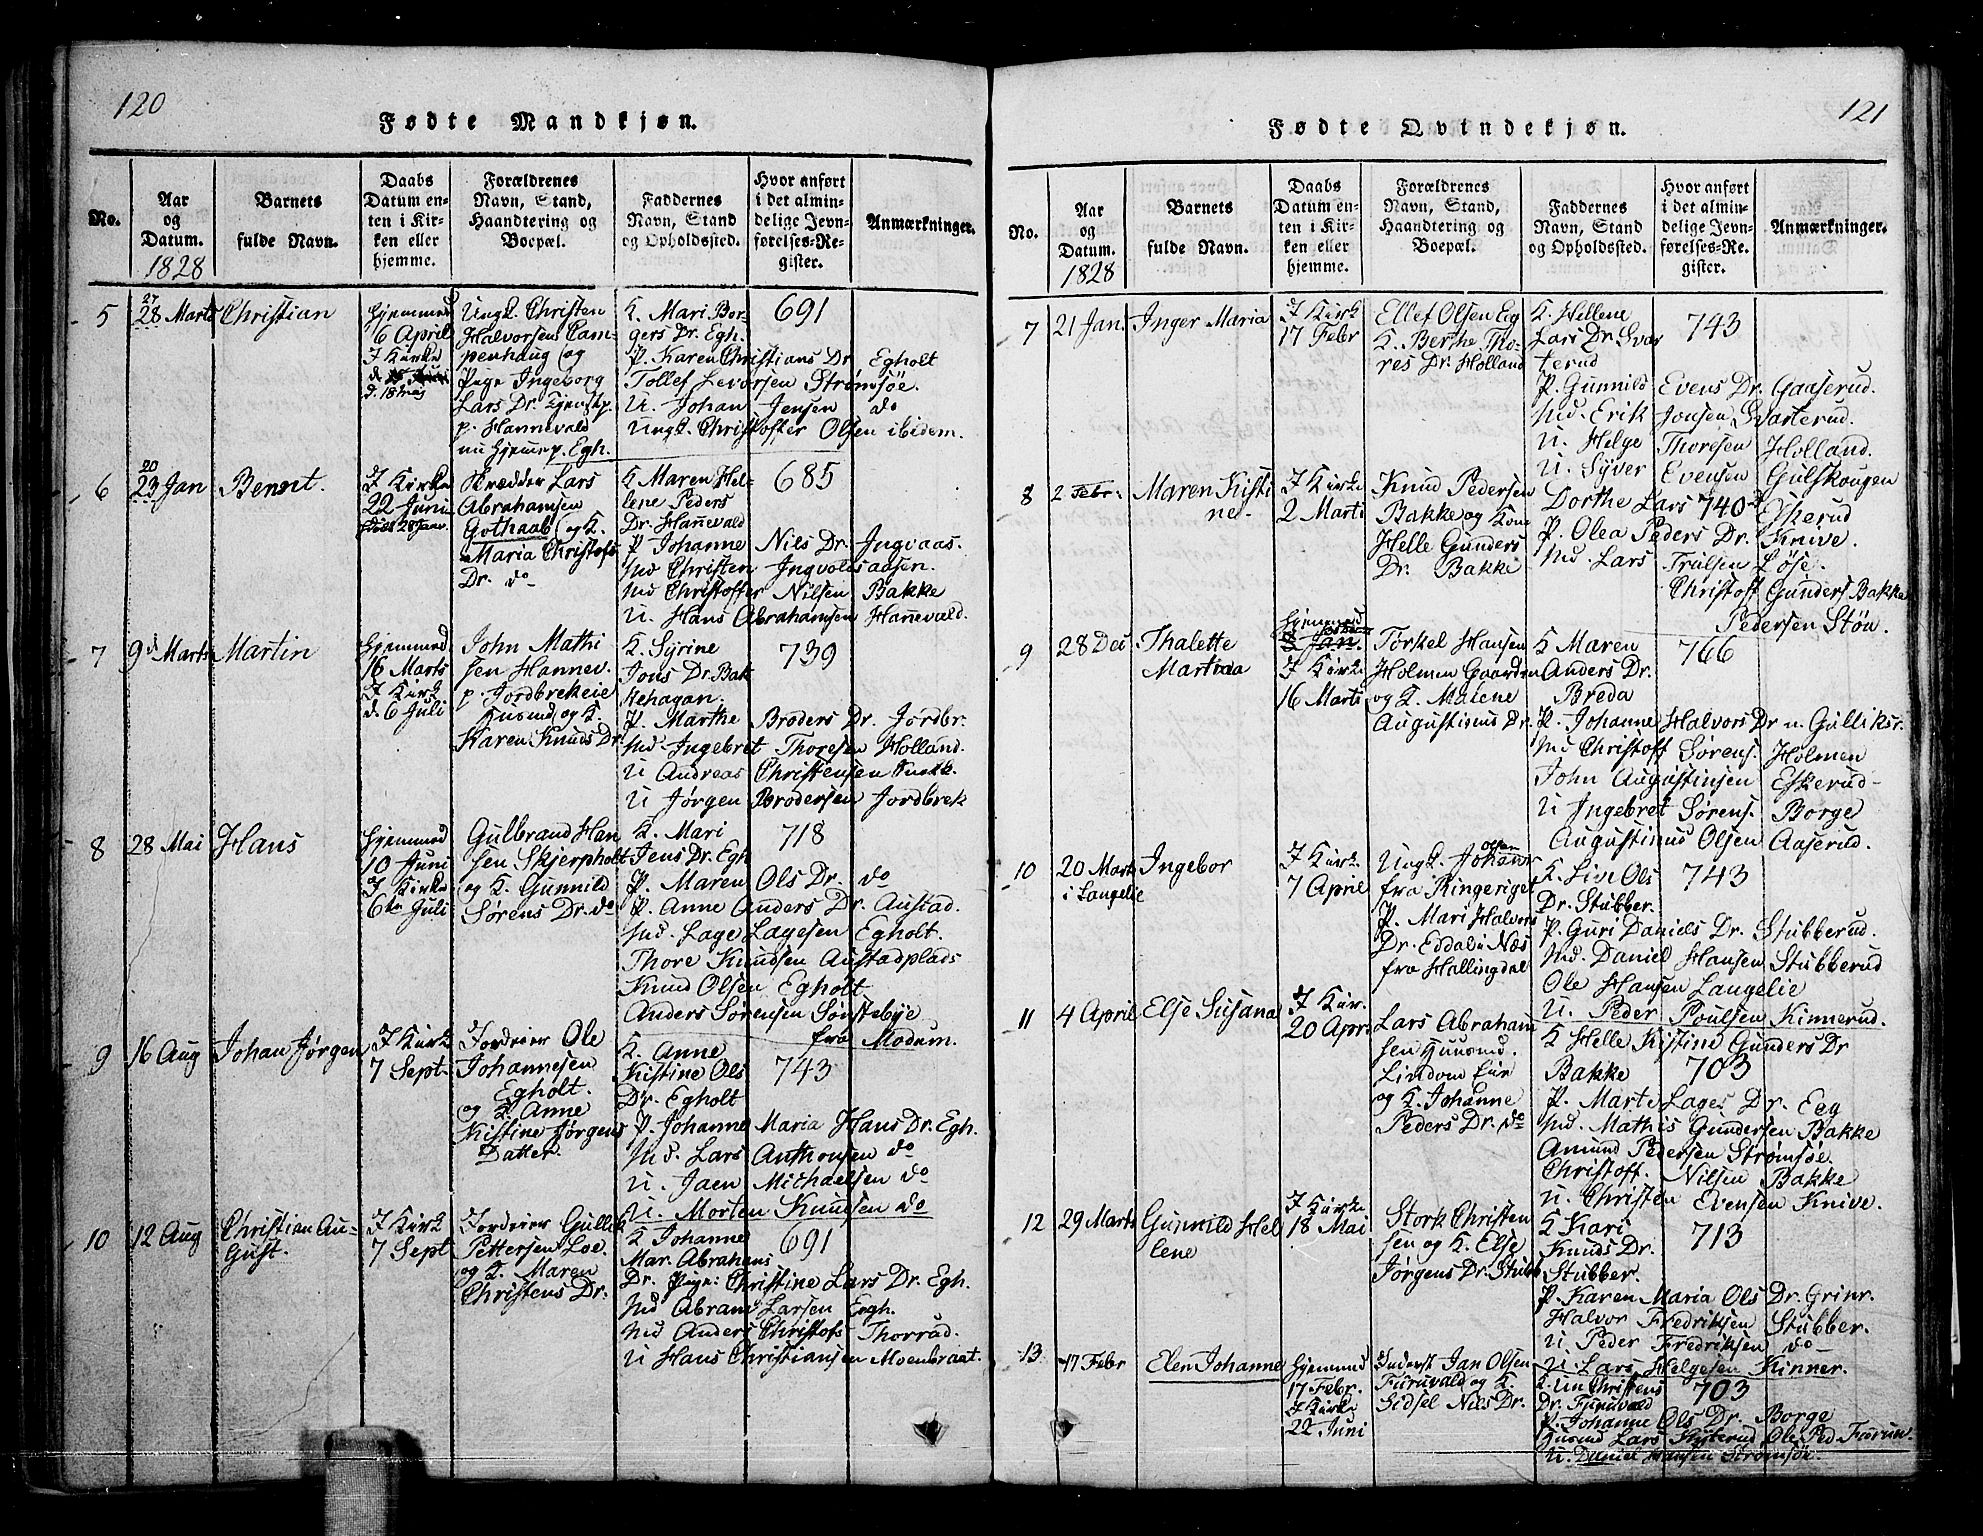 120
Fødte Mandkjøn.
No.
Aar
og
Datum.
1828
Barnets
fulde Navn.
Daabs
Datum en-
ten i Kir-
ken eller
hjemme.
Forældrenes
Navn, Stand,
Haandtering og
Boepæl.
Faddernes
Navn, Stand
og Opholdssted.
Hvor anført
i det almin-
delige Jevn-
førelses-Re-
gister.
Anmærkninger.
5
27
28 Marts
Christian
Hjemmed
6 April
I Kirke
d. 18 Mai
Ungk. Christen
Halvorsen Cam-
penhaug og
Pige Ingeborg
Lars Dr. Tjenst p.
p. Hannevald
nu hjemme p. Egh.
K. Mari Bor-
gers Dr. Egh.
P. Karen Christians Dr Egholt
Tollef Levorsen Strømsøe.
U. Johan Jensen do
Ungk. Christoffer Olsen ibidem.
691
6
20
23 Jan
Bernt.
I Kirke
22 Juni
Skrædder Lars
Abrahamsen
Gothaab og K.
Maria Christofs
Dr. do
K Maren Hel-
lene Peders
Dr. Hannevald
P. Johanne Nils Dr. Ingvaas.
Md Christen Ingvoldsaasen.
Md Christoffer Nilsen Bakke
U. Hans Abrahamsen Hanevald.
685
7
9de Marts
Martin
Hjemmed
16 Marts
I Kirk
d. 6 Juli
John Mathi
sen Hannev.
p. Jordbrekeie
Huusmd og K.
Karen Knuds Dr.
K. Syrine
Jons Dr. Bak
kehagan.
P. Marthe Broders Dr. Jordbr.
Md. Ingebret Thoresen Holland.
U Andreas Christensen
U Jørgen Brodersen Jordbrek
739
8
28 Mai
Hans
Hjemmed
10 Juni
I Kirke
6te Juli
Gulbrand Han
sen Skjerpholt
og K. Gunnild
Sørens Dr. do
K. Mari
Jens Dr. Egh
P. Maren Ols Dr. do
P. Anne Anders Dr. Austad.
Md. Lage Lagesen Egholt.
Thore Knudsen Austadplads
Knud Olsen Egholt
Anders Sørensen Sønstebye
fra Modum.
718
9
16 Aug
Johan Jørgen
I Kirk
7 Sept.
Jordeier Ole
Johannesen
Egholt.
og K. Anne
Kistine Jørgens
Datter.
K. Anne
Kistine Ols
Dr. Egholt
P. Johanne Maria Hans Dr. Egh.
Md. Lars Anthonsen do
U. Jaen Michaelsen do
U. Morten Knudsen do
743
10
12 Aug
Christian Au-
gust.
I Kirk
7 Sept
Jordeier Gullek
Pettersen Loe.
og K. Maren
Christens Dr.
K Johanne
Mar. Abrahams
Dr. Pige: Christine Lars Dr. Egh.
Md Abram Larsen Eegh.
Md Anders Christofs Thorrud.
U Hans Christiansen Moenbraat.
691
121
Fødte Qvindekjøn.
No.
Aar
og
Datum.
1828
Barnets
fulde Navn.
Daabs
Datum en-
ten i Kir-
ken eller
hjemme.
Forældrenes
Navn, Stand,
Haandtering og
Boepæl.
Faddernes
Navn, Stand
og Opholdssted.
Hvor anført
i det almin-
delige Jevn-
førelses-Re-
gister.
Anmærkninger.
7
21 Jan.
Inger Maria
I Kirk
17 Febr
Ellef Olsen Eg
K. Berthe Tho-
res Dr. Holland
K. Hellene
Lars Dr. Svar
terud
P. Gunnild Evens Dr. Gaaserud.
Md. Erik Jonsen Svarterud.
U. Helge Thoresen Holland.
U. Syver Evensen Gulskougen
743
8
2 Febr.
Maren Kisti
ne
I Kirke
2 Marts
Knud Pedersen
Bakke og Kone
Helle Gunders
Dr. Bakke
Dorthe Lars Eskerud
P. Olea Peders Dr. Knive.
Md Lars Trulsen Løse.
Christoff Gunders Bakke
Pedersen Støu.
740
9
28 Dec
Thalette
Martina
Hjemmed
2 Jan.
I Kirke
16 Marts
Torkel Hansen
Holmen Gaarden
og K. Malene
Augustinus Dr.
K Maren
Anders Dr.
Breda
P. Johanne Halvors Dr n. Gulliksr.
Md Christoff Sørens. Holmen
John Augustinsen Eskerud
U Ingebret Sørens. Borge
Augustinus Olsen Aaserud.
766
10
20 Marts
i Langelie
Ingebor
I Kirk.
7 April
Olsen
Ungk. Johannes
fra Ringeriget
P. Mari Halvors
Dr. Eddalu Næs
fra Hallingdal
K. Livi Ols
Dr. Stubber.
P. Guri Daniels Dr. Stubberud.
Md. Daniel Hansen Stubberud
Ole Hansen Langelie
U. Peder Poulsen Kinnerud.
743
11
4 April
Else Susana
I Kir.
20 Apr.
Lars Abraham
sen Huusmd.
Lindom Eie
og K. Johanne
Peders Dr. do
K Helle Kistine Gunders Dr
Bakke
P. Marte Lages Dr. Eeg
Md. Mathis Gundersen Bakke
Amund Pedersen Strømsøe.
Christoff. Nilsen Bakke
U. Christen Evensen Knive.
703
12
29 Marts
Gunnild Hel
lene
I Kirke
18 Mai
Stork Christen
sen og K. Else
Jørgens Dr. Stubb
K Kari
Knuds Dr.
Stubber.
P. Karen Maria Ols Dr. Grinr.
Halvor Fredriksen Stubber.
U. Peder Fredriksen do
U. Lars Helgesen Kinner.
713
13
17 Febr
Elen Johanne
Hjemmed
17 Febr.
I Kirke
22 Juni
Inderst Jan Olsen
Furuvald og K.
Sidsel Nils Dr.
K. Christens
Dr. Furuvald
P. Johanne Ols Dr. Borge
Huusmd Lars Kisterud Ole Ped. Furuv.
U. Daniel Hansen Strømsøe.
703